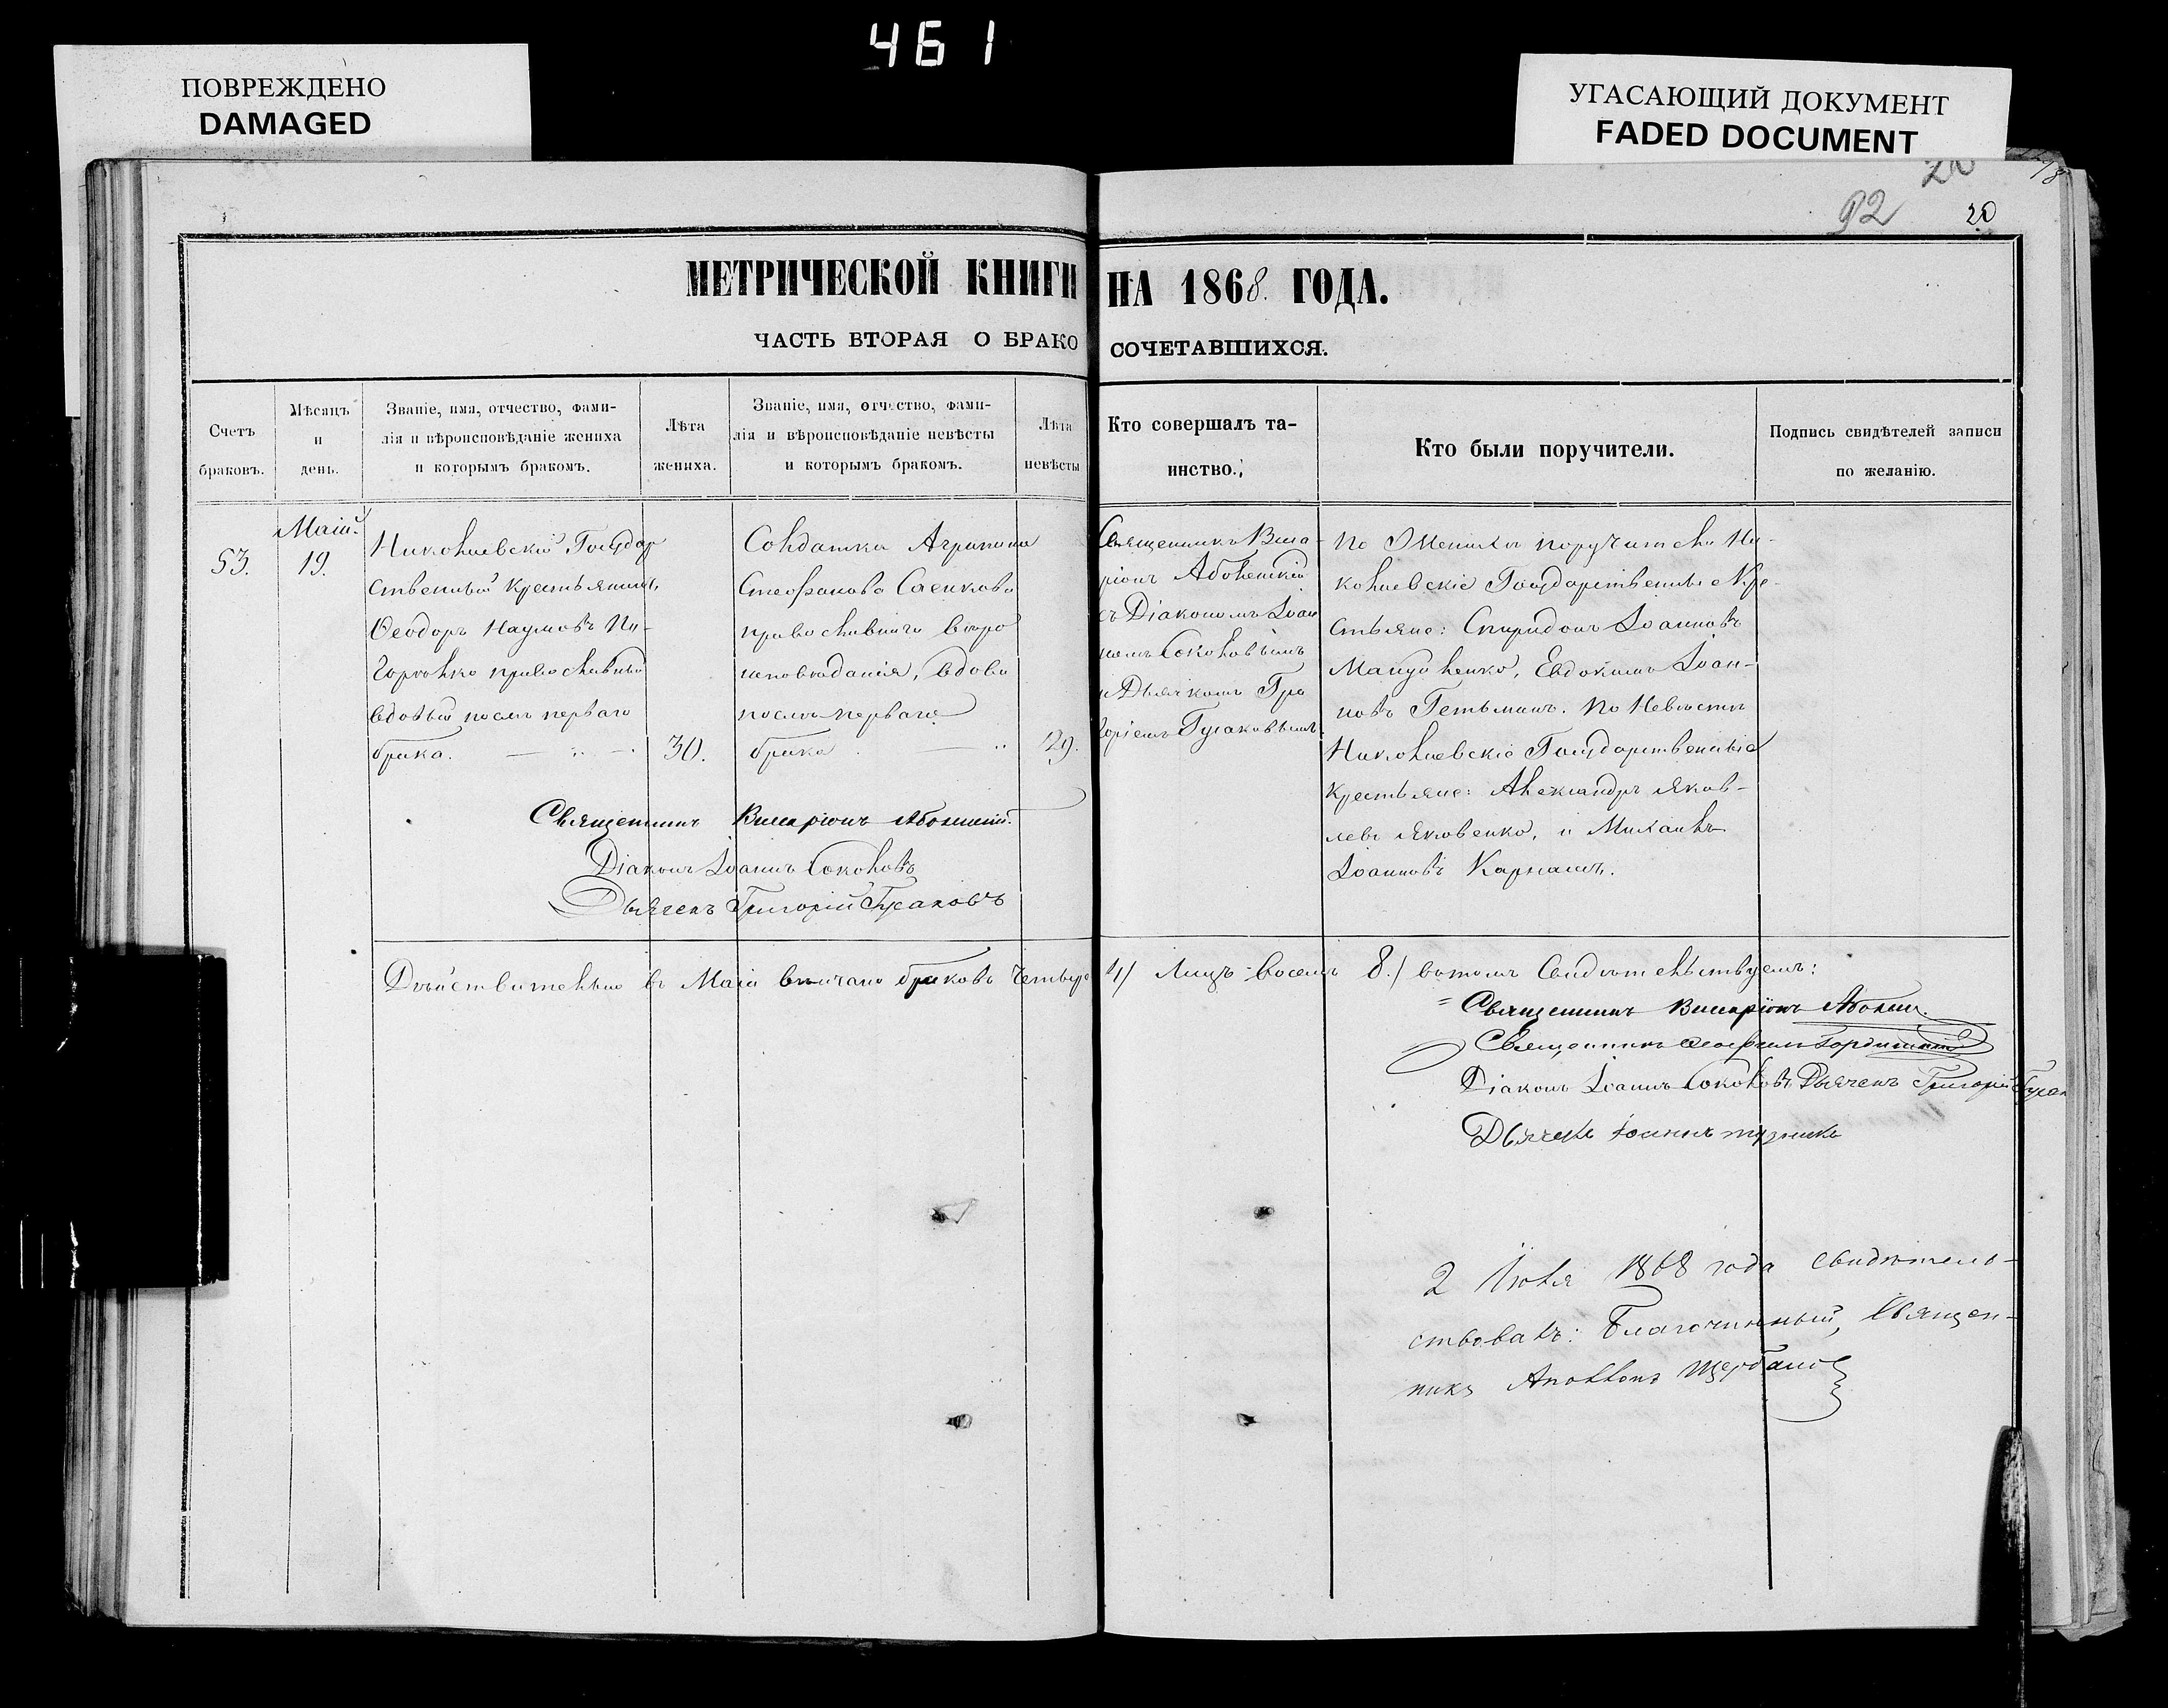 461
ПОВРЕЖДЕНО
DAMAGED
УГАСАЮЩИЙ ДОКУМЕНТ
FADED DOCUMENT
92
20
МЕТРИЧЕСКОЙ КНИГИ НА 1868. ГОДА.
ЧАСТЬ ВТОРАЯ О БРАКОСОЧЕТАВШИХСЯ.
Счетъ
браковъ.
Мѣсяцъ
и
день.
Званіе, имя, отчество, фами-
лія и вѣроисповѣданіе жениха
и которымъ бракомъ.
Лѣта
жениха.
Званіе, имя, отчество, фами-
лія и вѣроисповѣданіе невѣсты
и которымъ бракомъ.
Лѣта
невѣсты
Кто совершалъ та-
инство.
Кто были поручители.
Подпись свидѣтелей записи
по желанію.
53.
Маій.
19.
Николаевскій Государ
ственный крестьянинъ
Ѳеодоръ Наумовъ
православный
вдовый послѣ перваго
брака.
30.
Солдатка Агрипина
Стефанова Саенкова
православнаго вѣро
исповѣданія, вдова
послѣ перваго
брака
29.
Священникъ Висса-
ріонъ
съ Діакономъ Іоан
номъ Соколовымъ
и Дьячкомъ Гри
горіемъ Гусаковымъ.
По Женихѣ поручители Ни-
колаевскіе Государственные Кре-
стьяне: Спиридонъ Іоанновъ
Евдокимъ Іоан-
новъ Гетьманъ. По Невѣстѣ
Николаевскіе Государственные
крестьяне: Александръ Яков-
левъ Яковенко, и Михаилъ
Іоанновъ Карнаухъ.
Священникъ Виссаріонъ
Діаконъ Іоаннъ Соколовъ
Дьячекъ Григорій Гусаковъ
Дѣйствительно въ Маіи вѣнчано браковъ четыре 4/ Лицъ восемь 8./ въ томъ Свидѣтельствуемъ:
Священникъ Виссаріонъ
Священникъ
Діаконъ Іоаннъ Соколовъ Дьячекъ Григорій Гусак
Дьячекъ Іоаннъ
2 Іюля 1868 года свидѣтель-
ствовалъ: Благочинный, Священ-
никъ Аполлонъ